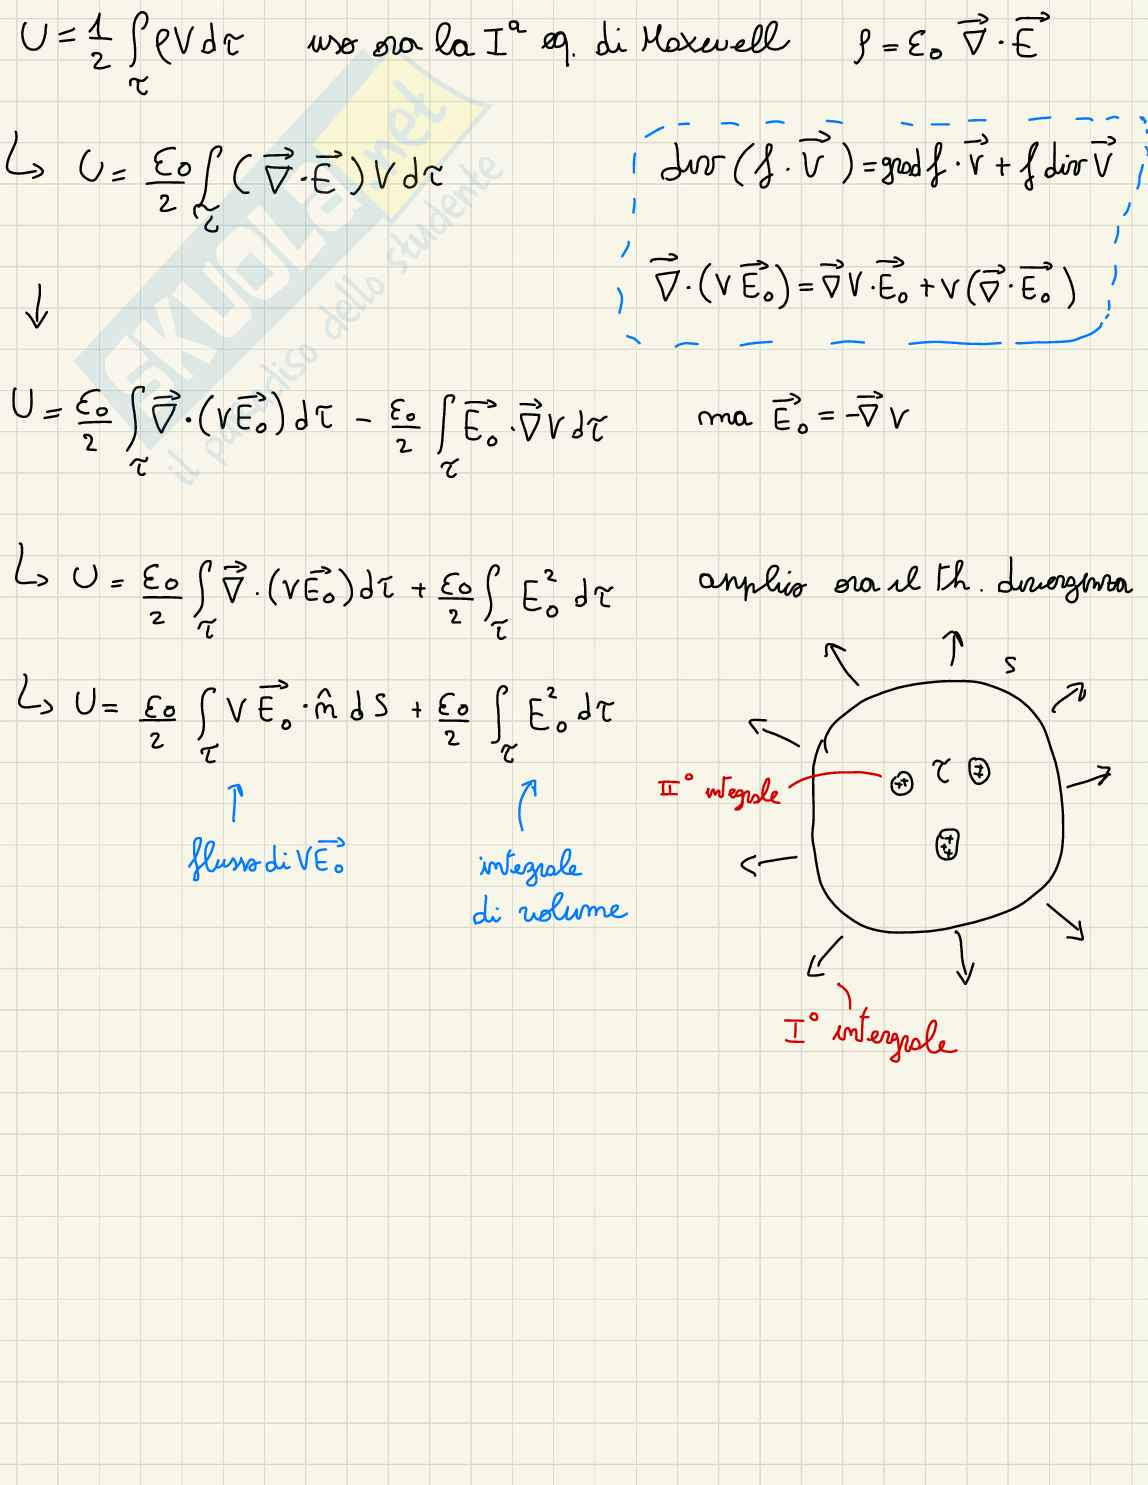 U = 1/2 ∫_τ ρ V dτ uso ora la Iª eq. di Maxwell ρ = ε₀ ∇⃗ · E⃗
↳ U = ε₀/2 ∫_τ (∇⃗ · E⃗) V dτ
div (f · V⃗) = grad f · V⃗ + f div V⃗
∇⃗ · (V E⃗₀) = ∇⃗V · E⃗₀ + V(∇⃗ · E⃗₀)
↓
U = ε₀/2 ∫_τ ∇⃗ · (V E⃗₀) dτ - ε₀/2 ∫_τ E⃗₀ · ∇⃗V dτ ma E⃗₀ = -∇⃗V
↳ U = ε₀/2 ∫_τ ∇⃗ · (V E⃗₀) dτ + ε₀/2 ∫_τ E₀² dτ applico ora il th. divergenza
↳ U = ε₀/2 ∫_τ V E⃗₀ · n̂ dS + ε₀/2 ∫_τ E₀² dτ
flusso di V E⃗₀
integrale
di volume
S
τ
II° integrale
++
+
+
+
+
I° intergrale
SKUOLA.net
il paradiso dello studente